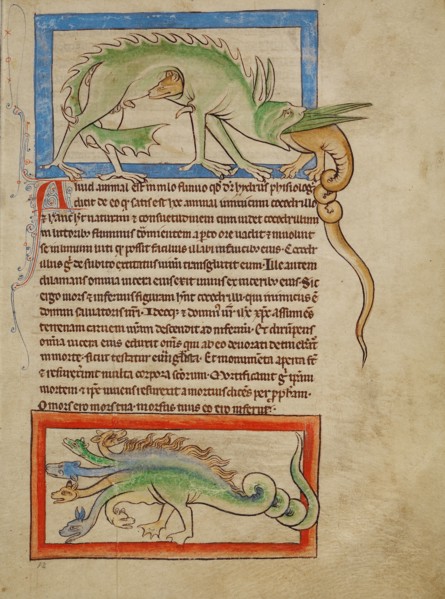 Aliud animal est in nilo fluuio qd dr hydrus phisiolog⁹
dicit de eo qd satis est hoc animal inimicum cocodrillo
& hanc ht naturam & consuetudinem cum uidet cocodrillum
in litoribus fluminis dormientem aperto ore uadit & inuoluit
se in limum luti quo possit facilius illabi in faucibus eius. Cocodr
illus g de subito excitatus uiuum transglutit eum. Ille autem
dilanians omnia uiscera eius exit uiuus ex uisceribus eius. Sic
ergo mors & infernus figuram hnt cocodrilli. qui inimicus ē
domini saluatoris nri. Ideoq; & dominus nr ihc xpc. assumens
terrenam carnem nram descendit ad infernum. Et disrumpens
omnia uiscera eius eduxit omnes qui ab eo deuorati detinebant
in morte. sicut testatur euangelista. Et monumenta aperta st
& resurrexerunt multa corpora scorum. Mortificauit g ipsam
mortem & ipse uiuens resurrexit a mortuis dicens per ppham.
O mors ero mors tua. morsus tuus ero inferne.
12